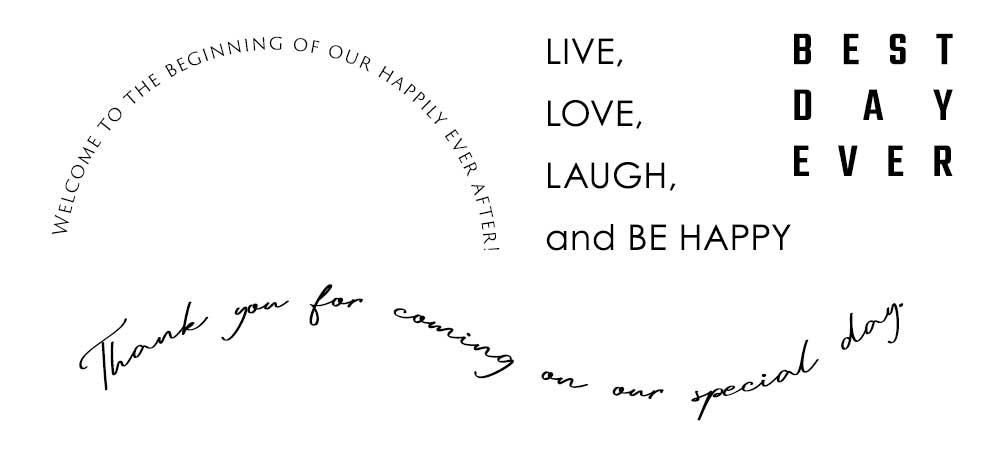 WELCOME TO THE BEGINNING OF OUR HAPPILY EVER AFTER!
LIVE,
LOVE,
LAUGH,
and BE HAPPY
BEST
DAY
EVER
Thank you for coming on our special day.